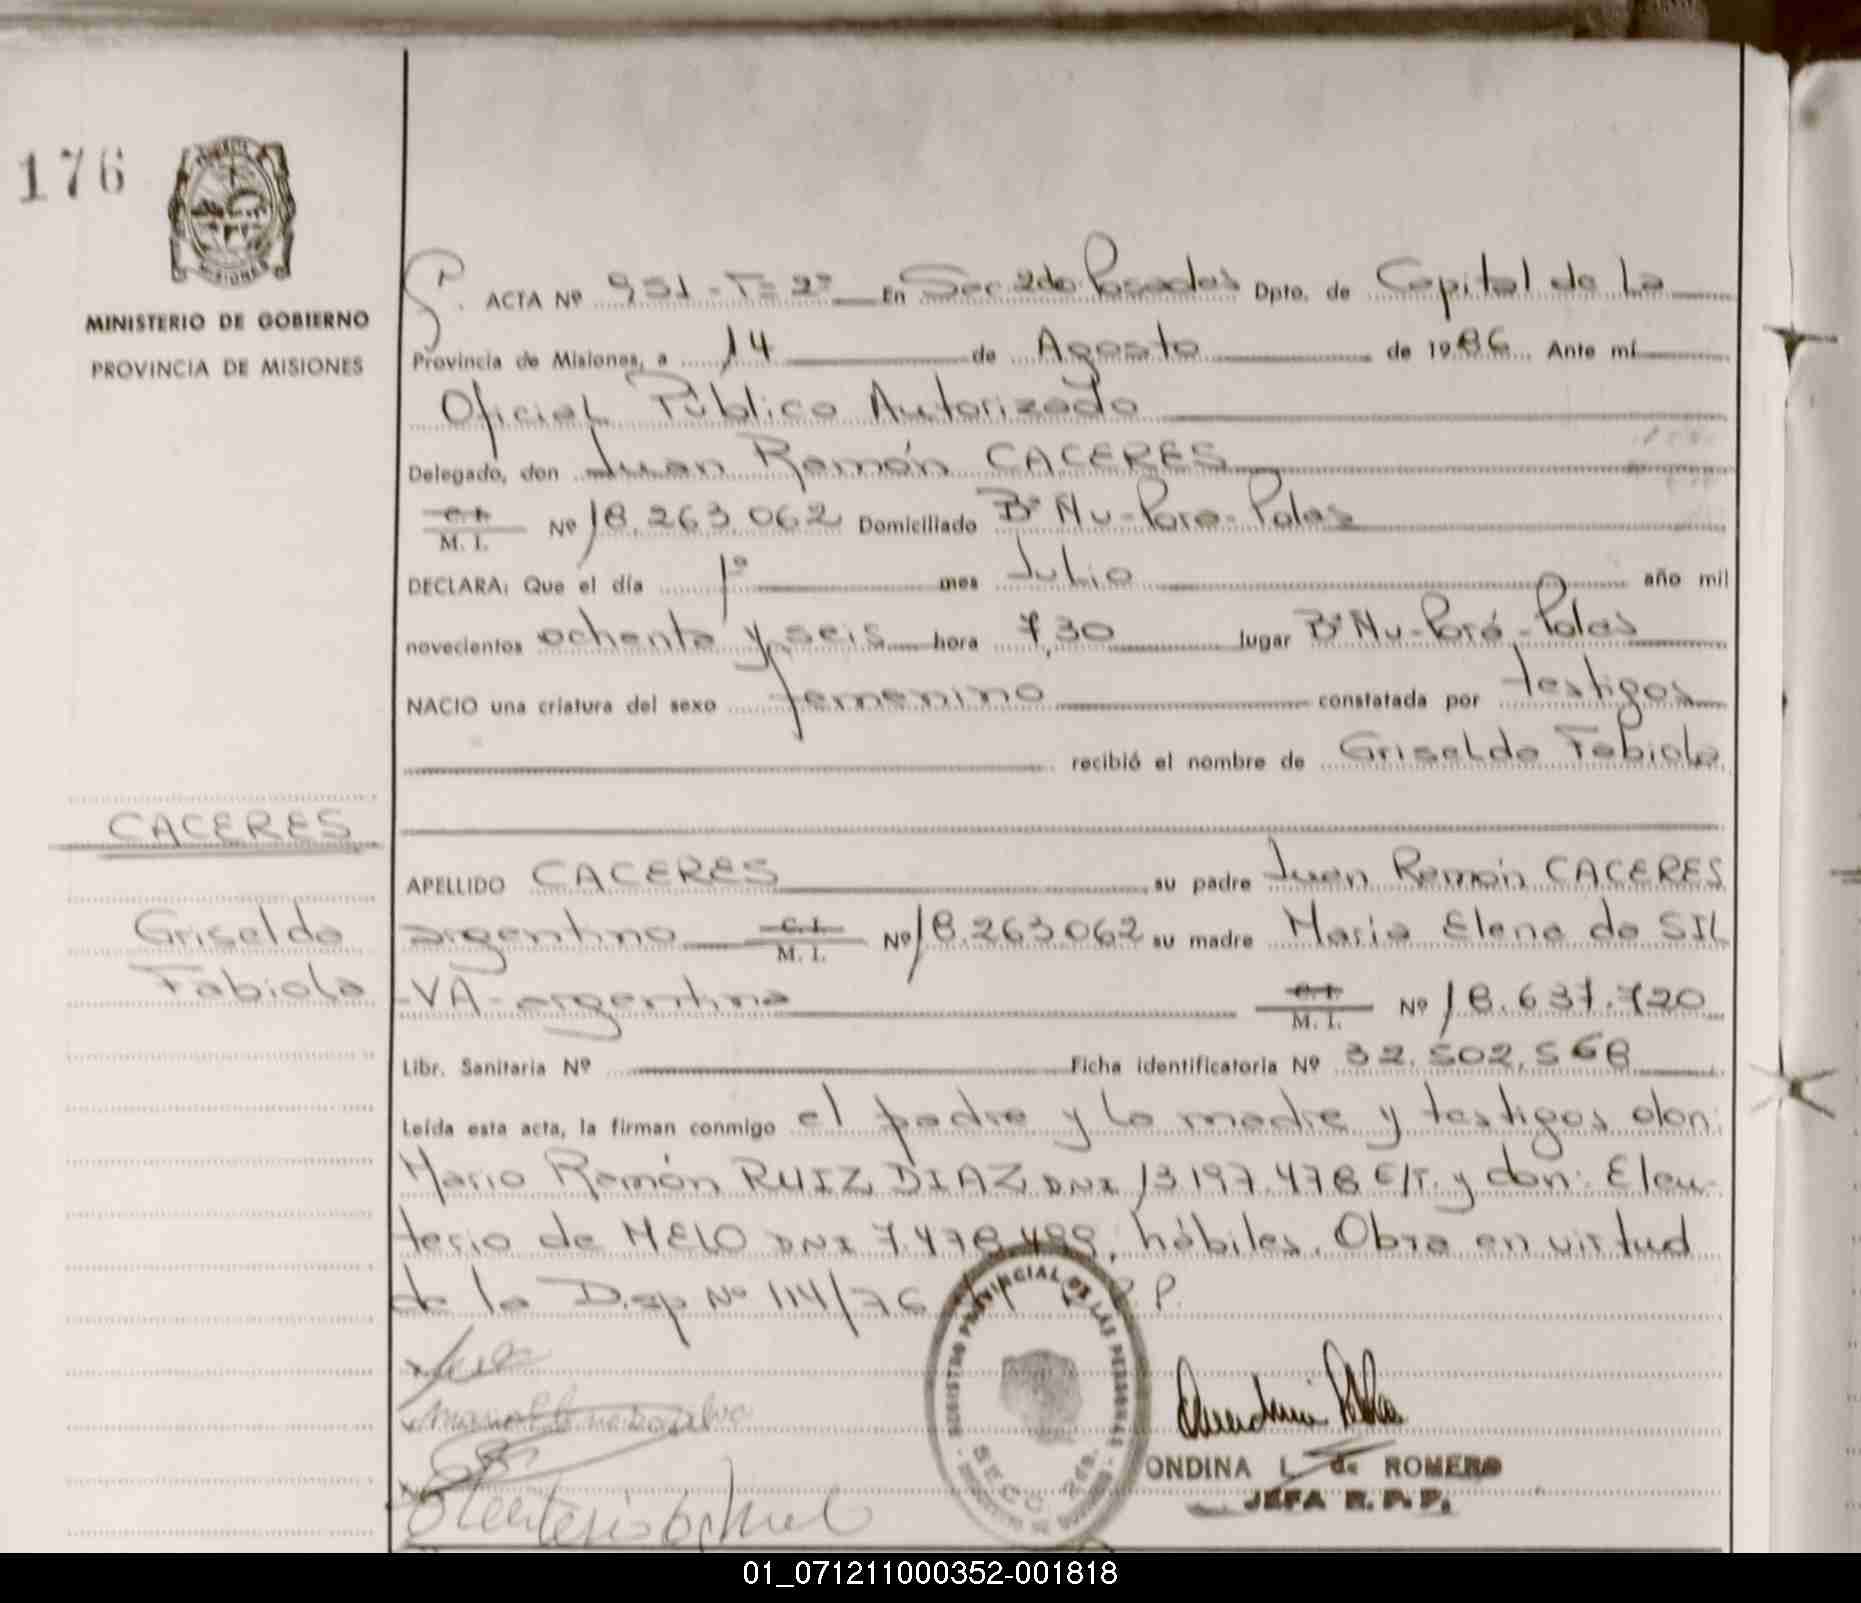 176
MINISTERIO DE GOBIERNO
PROVINCIA DE MISIONES
ACTA Nº 951 - Tº 2º En Sec 2do Posadas Dpto. de Capital de la
Provincia de Misiones, a 14 de Agosto de 1986 Ante mí
Oficial Público Autorizado
Delegado, don Juan Ramón CACERES
C. I.
M. I. Nº 18.263.062 Domiciliado Bº Ñu-Porá-Pdas
DECLARA: Que el día 1º mes Julio año mil
novecientos ochenta y seis hora 7,30 lugar Bº Ñu-Porá-Pdas
NACIO una criatura del sexo femenino constatada por testigos
recibió el nombre de Griselda Fabiola
CACERES
Griselda
Fabiola
APELLIDO CACERES su padre Juan Ramón CACERES
argentino C. I. M. I. Nº 18.263.062 su madre Maria Elena da SIL
-VA-argentina C. I. M. I. Nº 18.637.720
Libr. Sanitaria Nº Ficha identificatoria Nº 32.502.568
Leída esta acta, la firman conmigo el padre y la madre y testigos don:
Mario Ramón RUIZ DIAZ DNI 13.197.478 E/T. y don: Eleu-
terio de MELO DNI 7.478.499, hábiles. Obra en virtud
de la Disp Nº 114/76 R.P.P.
REGISTRO PROVINCIAL DE LAS PERSONAS
SECC. 2da.
ONDINA L. de ROMERO
JEFA R. P. P.
01_071211000352-001818